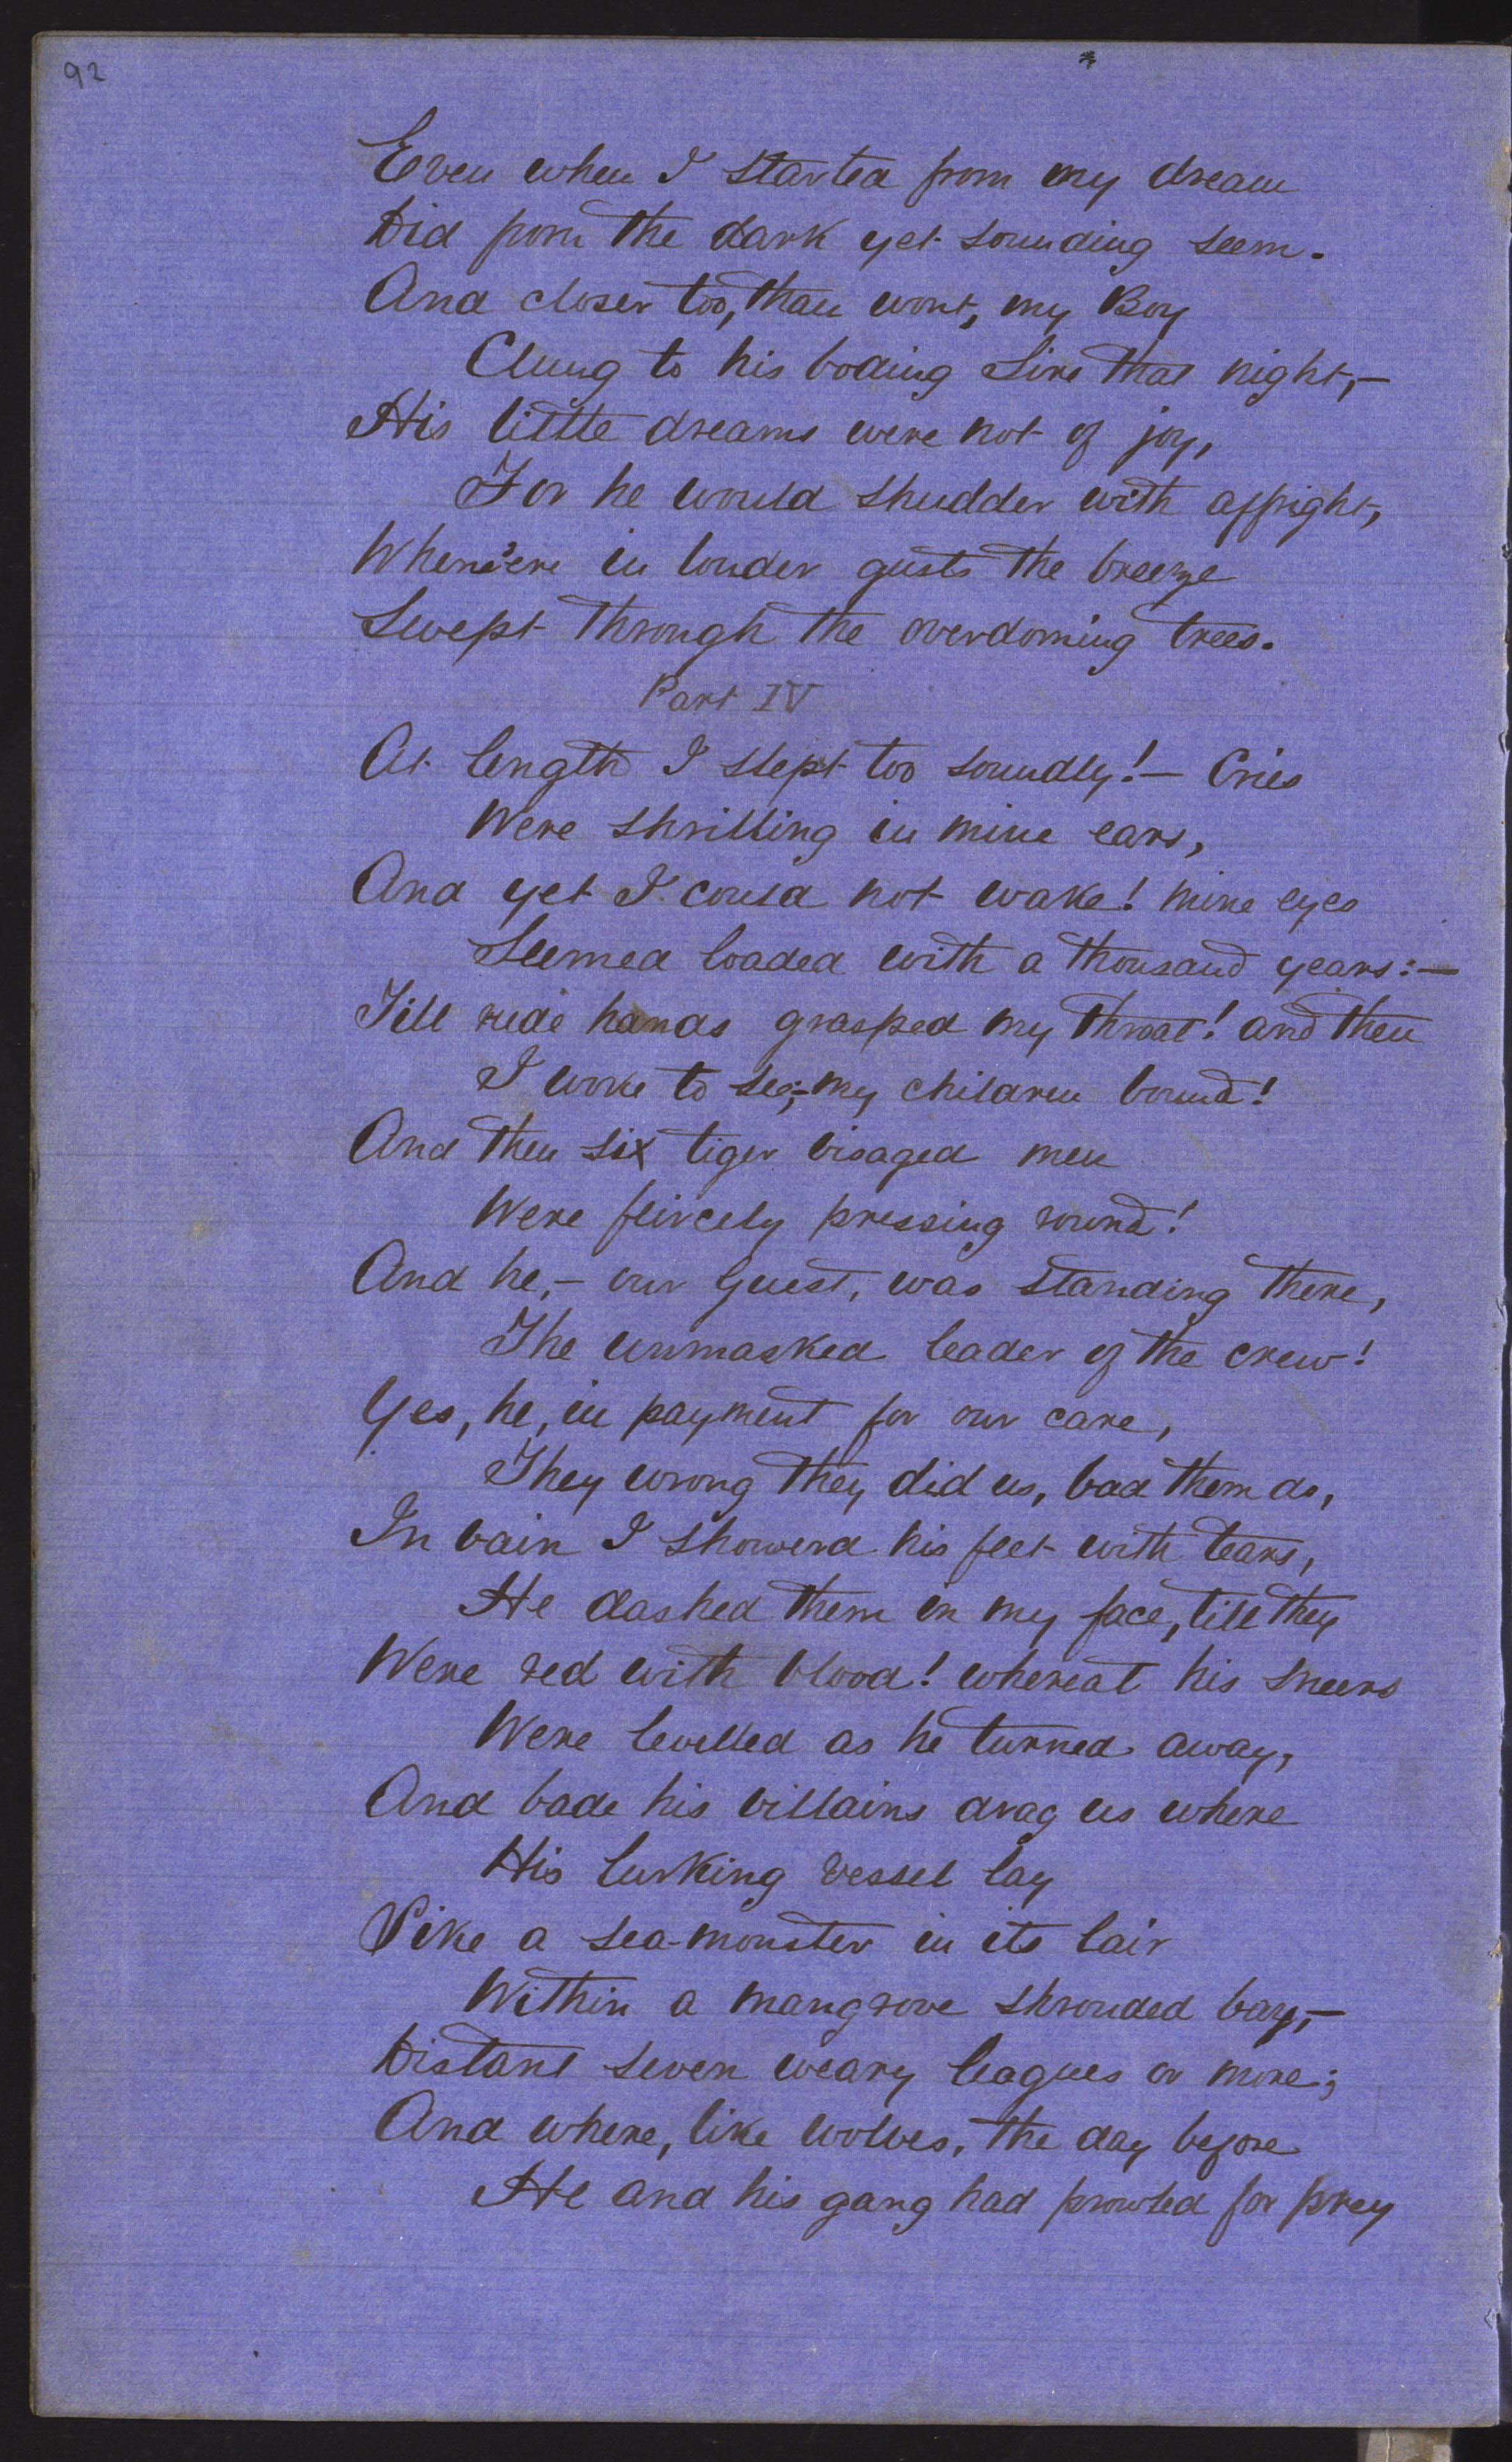 92
Even when I started from my dream
Did from the dark yet sounding seem.
And closer too, than wont, my Boy
Clung to his boding Sire that night,—
His little dreams were not of joy,
For he would shudder with affright,
When'ere in louder gusts the breeze
Swept through the overdoming trees.
Part IV
At length I slept too soundly!— Cries
Were shrilling in mine ears,
And yet I could not wake! mine eyes
Seemed loaded with a thousand years:—
Till rude hands grasped my throat! and then
I woke to see,— my children bound!
And then six tiger visaged men
Were feircely pressing round!
And he,— our Guest, was standing there,
The unmasked leader of the crew!
Yes, he, in payment for our care,
They wrong they did us, bad them do,
In vain I showerd his feet with tears,
He dashed them in my face, till they
Were red with blood! whereat his sneers
Were levelled as he turned away,
And bade his villains drag us where
His lurking vessel lay
Like a sea-monster in its lair
Within a mangrove shrouded bay,—
Distant seven weary leagues or more;
And where, like wolves, the day before
He and his gang had prowled for prey